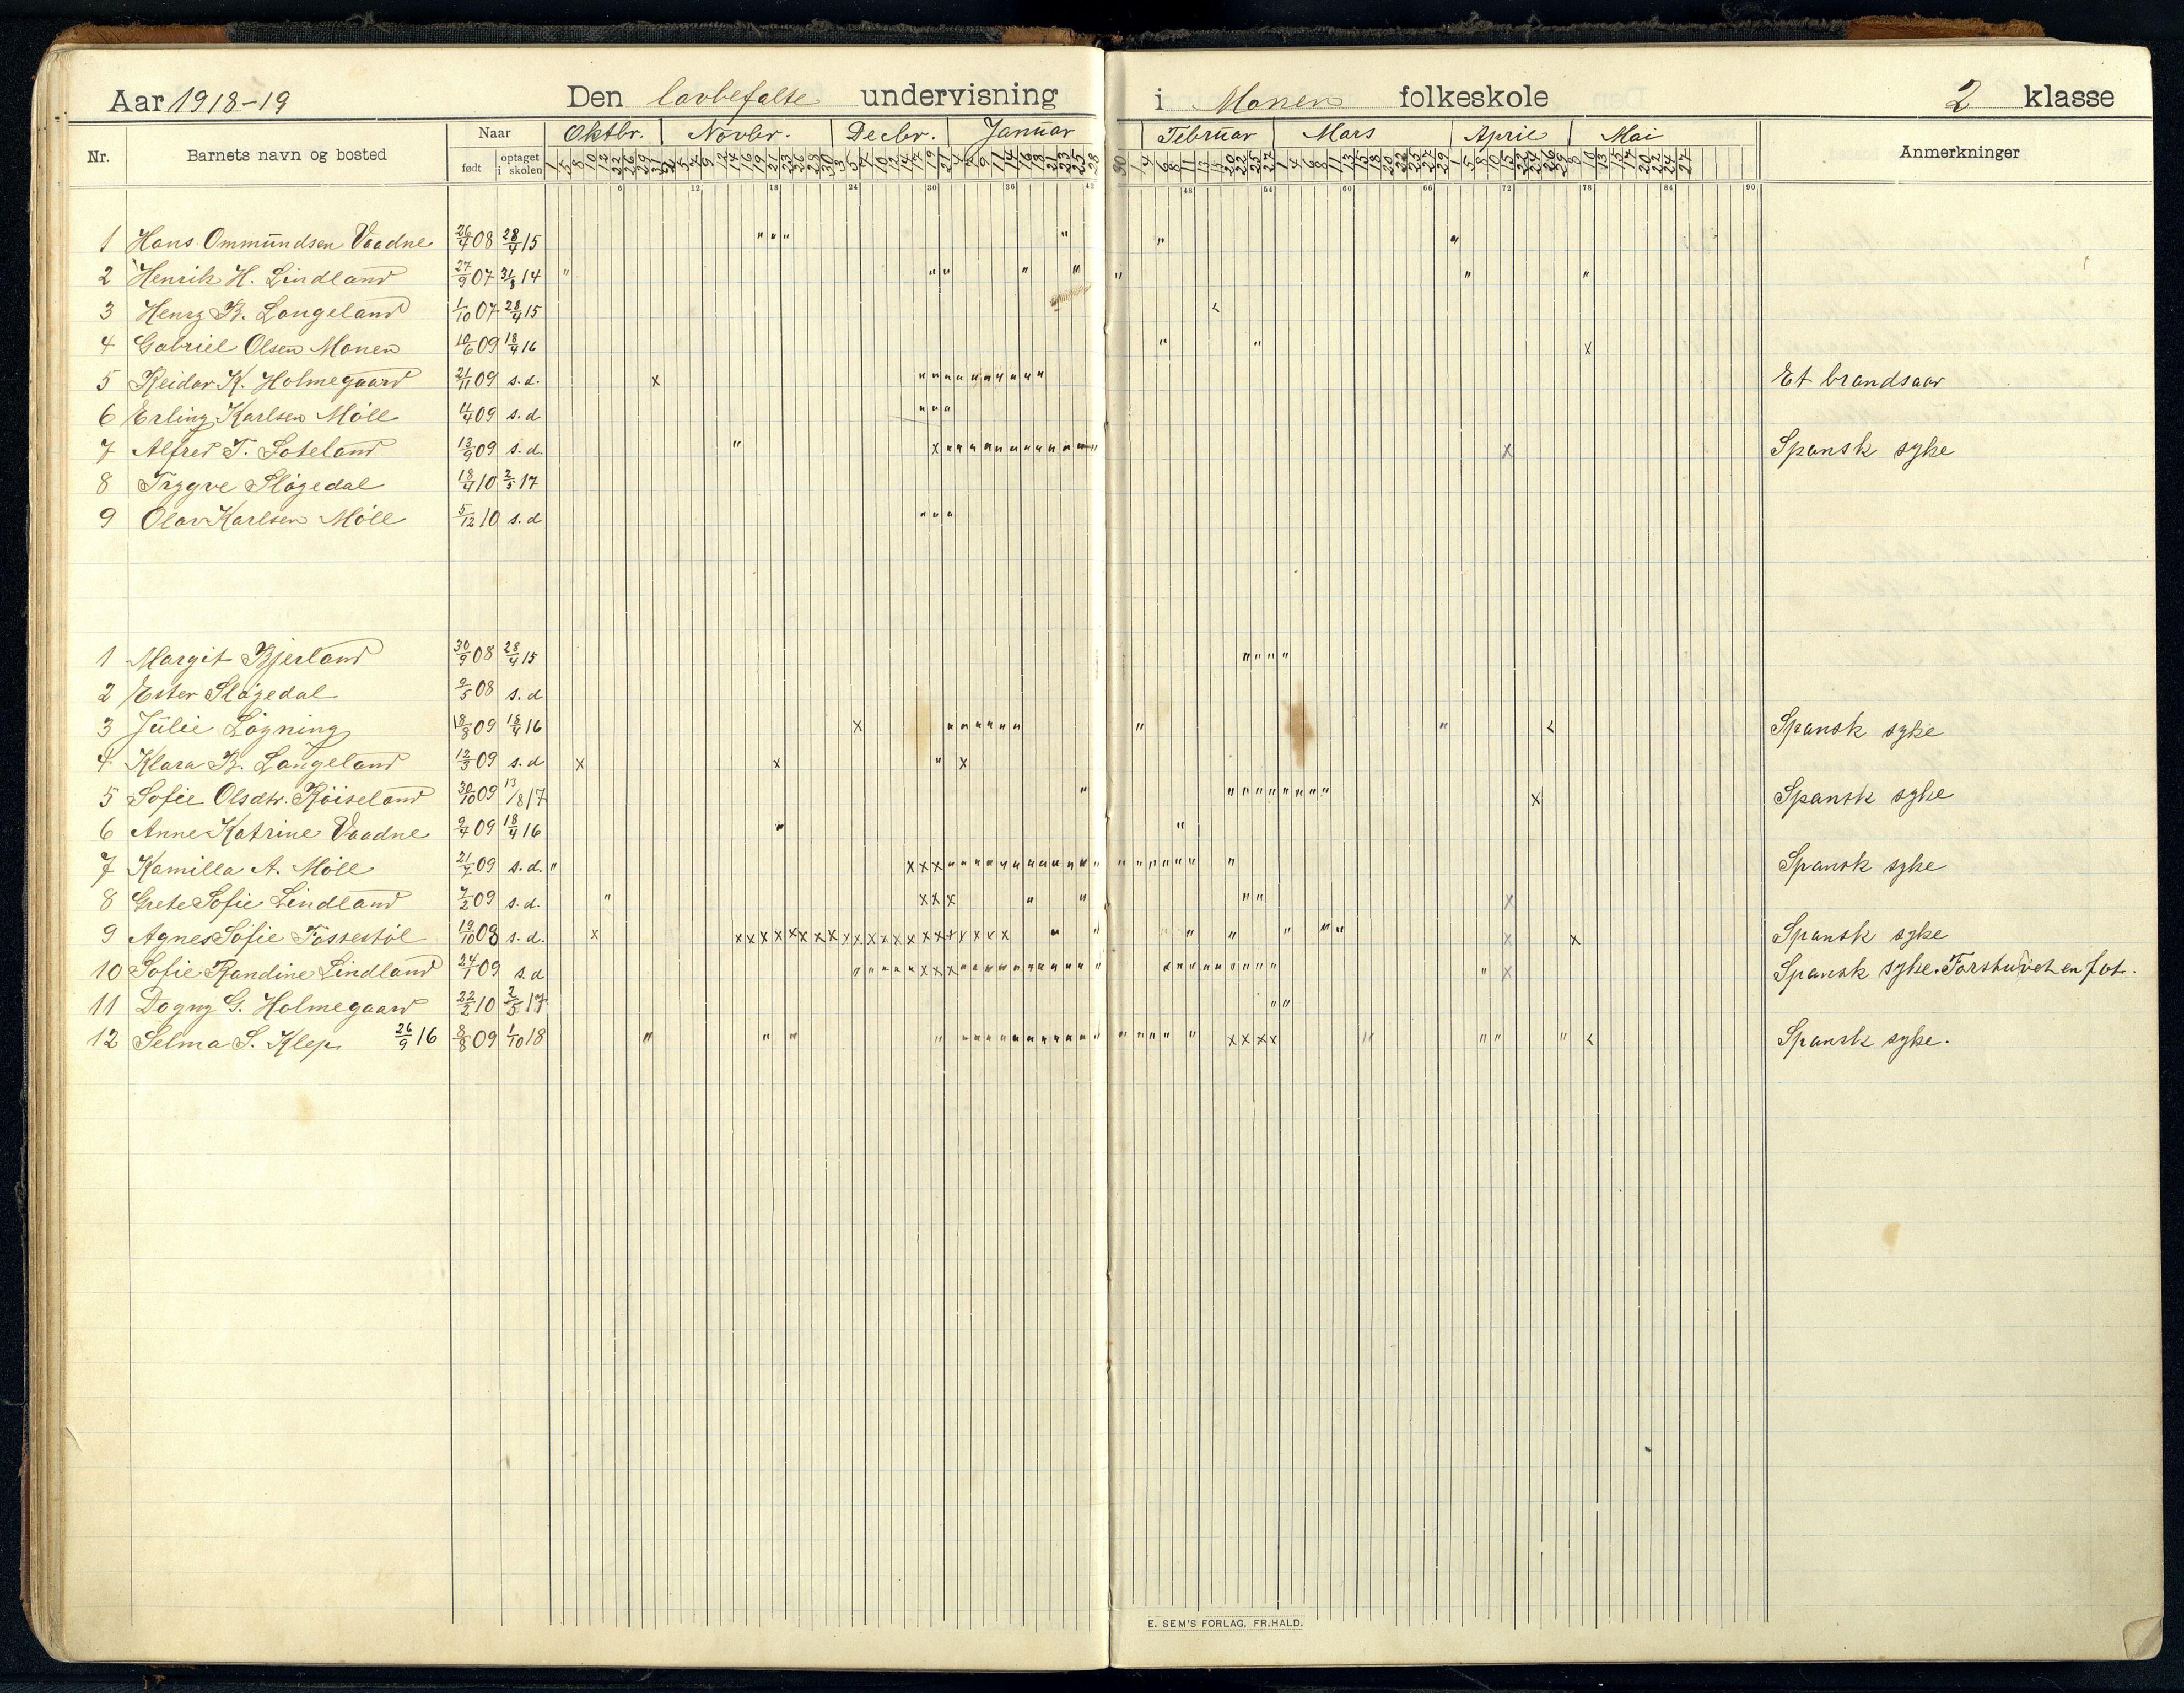 Aar 1918-19 Den lovbefalte undervisning i Monen folkeskole 2 klasse
Nr. Barnets navn og bosted Naar født optaget i skolen Oktbr. Novbr. Decbr. Januar Februar Mars April Mai Anmerkninger
6 12 18 24 30 36 42 48 54 60 66 72 78 84 90
1 Hans Ommundsen Vaadne 26/4 08 28/4 15
2 Henrik H. Lindland 27/9 07 31/8 14
3 Henry B. Langeland 1/10 07 28/4 15
4 Gabriel Olsen Monen 10/6 09 18/4 16
5 Reidar K. Holmegaard 21/11 09 s.d. Et brandsaar
6 Erling Karlsen Möll 4/4 09 s.d
7 Alfred T. Loteland 13/9 09 s.d. Spansk syke
8 Trygve Slögedal 18/4 10 2/5 17
9 Olav Karlsen Möll 5/12 10 s.d
1 Margit Bjerland 30/9 08 28/4 15
2 Ester Slögedal 9/5 08 s.d
3 Julie Lögning 18/8 09 18/4 16 Spansk syke
4 Klara B. Langeland 12/3 09 s.d
5 Sofie Olsdtr. Röiseland 30/10 09 13/8 17 Spansk syke
6 Anne Katrine Vaadne 9/4 09 18/4 16
7 Kamilla A. Möll 21/7 09 s.d. Spansk syke
8 Grete Sofie Lindland 7/2 09 s.d.
9 Agnes Sofie Fossestöl 19/10 08 s.d. Spansk syke
10 Sofie Randine Lindland 24/1 09 s.d Spansk syke. Forstuvet en fot.
11 Dagny G. Holmegaard 22/2 10 2/5 17
12 Selma S. Klep 26/9 16 8/8 09 1/10 18 Spansk syke.
E. SEM'S FORLAG, FR.HALD.